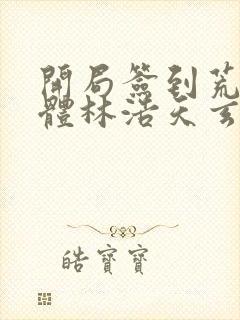 開局簽到荒
體林浩天玄
皓寶寶